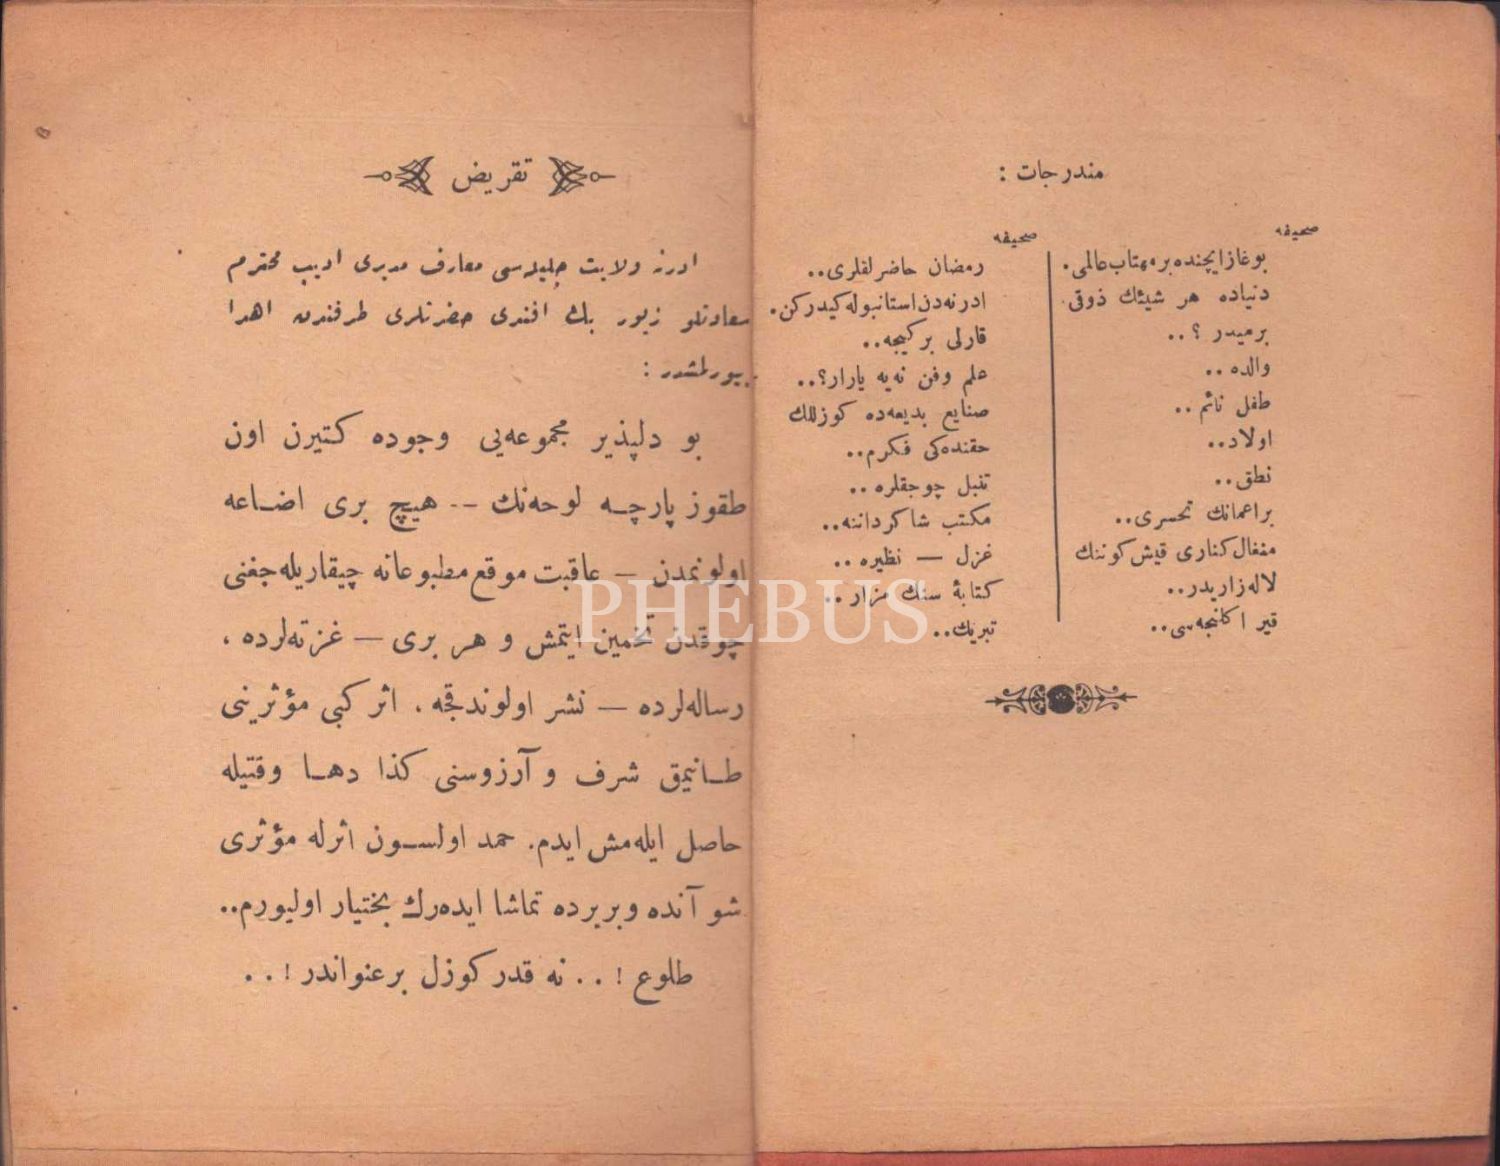 مندرجات :
صحیفه
بوغاز ایچنده بر مهتاب عالمی.
دنیاده هر شیئك ذوقی
برمیدر ؟..
والده ..
طفل نائم ..
اولاد..
نطق..
براعمانك تحسری..
منغال كناری قیش كوننك
لاله‌زاریدر..
قیر اكلنجه‌سی..
صحیفه
رمضان حاضرلقلری..
ادرنه‌دن استانبوله كیدركن.
قارلی بر كیجه..
علم وفن نه‌یه یارار؟..
صنایع بدیعه‌ده كوزللك
حقنده‌كی فكرم..
تنبل چوجقلره ..
مكتب شاكرداننه..
غزل — نظیره ..
كتابهٔ سنك مزار ..
تبریك..
تقریض
ادرنه ولایت جلیله‌سی معارف مدیری ادیب محترم
سعادتلو زیور بك افندی حضرتلری طرفندن اهدا
بیورلمشدر :
بو دلپذیر مجموعه‌یی وجوده كتیرن اون
طقوز پارچه لوحه‌نك -- هیچ بری اضاعه
اولونمدن — عاقبت موقع مطبوعانه چیقاریله‌جغنی
چوقدن تخمین ایتمش و هر بری — غزته‌لرده ،
رساله‌لرده — نشر اولوندقجه ، اثر كبی مؤثرینی
طانیمق شرف و آرزوسنی كذا دها وقتیله
حاصل ایله‌مش ایدم. حمد اولسون اثرله مؤثری
شو آنده و بریرده تماشا ایده‌رك بختیار اولیورم..
طلوع !.. نه قدر كوزل بر عنواندر !..
PHEBUS